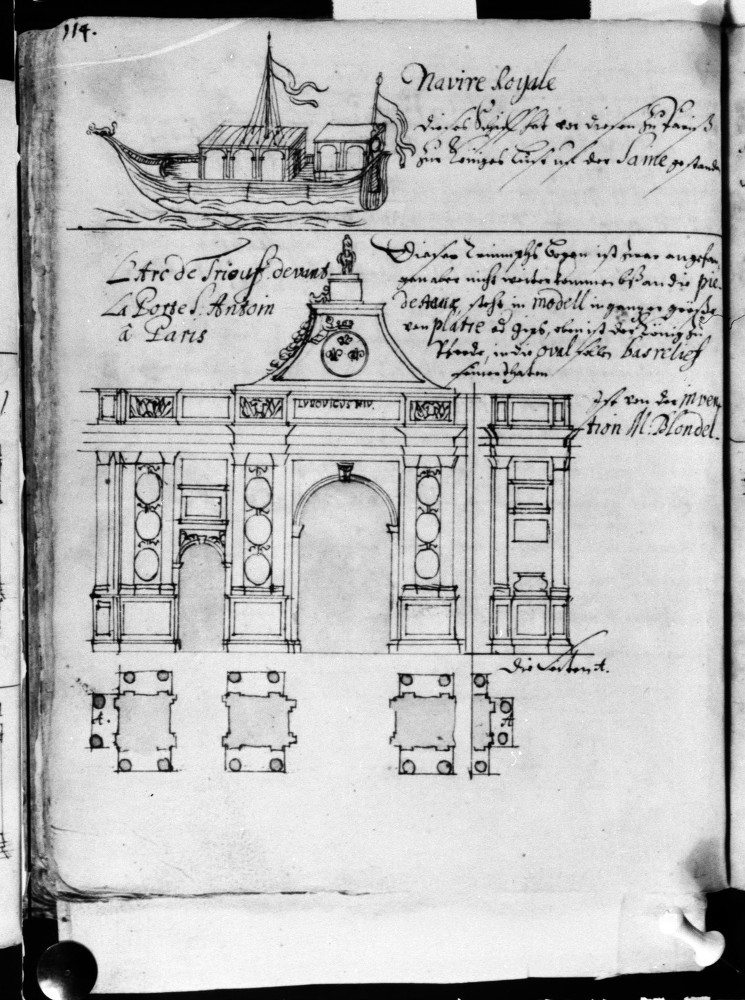 114.
Navire Royale
dieses Schif hat vor diesen zu Pariß
zur Königes lust uf der Saine gestanden
L'Arc de Triouff. devant
La Porte S. Antoin
à Paris
Dieser Triumphs Bogen ist zwar angefan
gen aber nicht weiter kommen biß an die pie-
destaux, steht in modell in ganzer größe
von platre od gips, oben ist der König zu
Pferde, in die oval sollen bas relief
LVDOVICUS XIV.
Ist von der inven
tion M. Blondel.
Die Seiten A.
A.
A